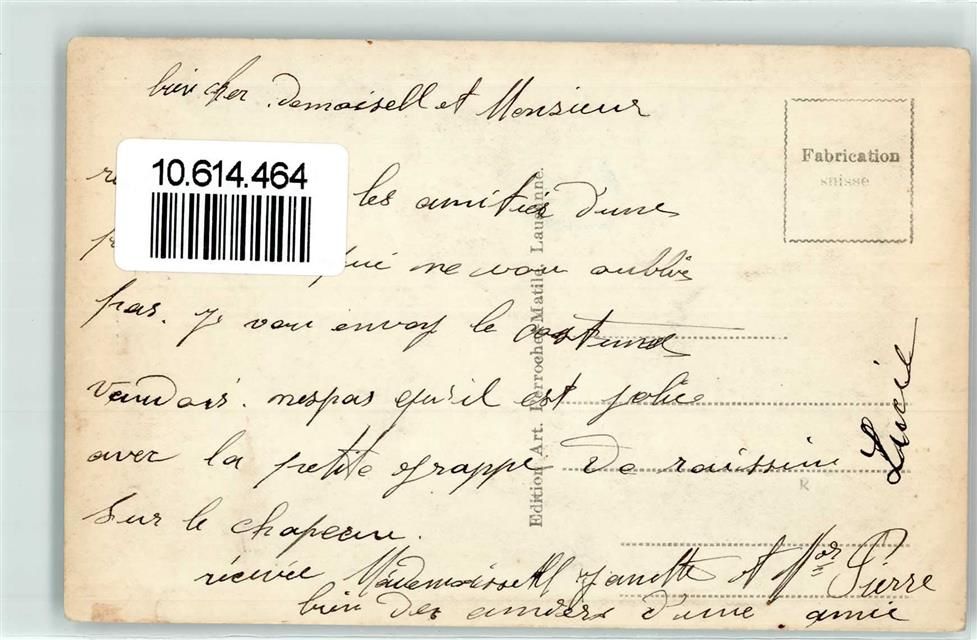 bien cher Demoisell et Monsieur
10.614.464
les amitiés d'une
qui ne vou oublie
pas. je vou envoy le costume
vaudois. nespas qu'il est jolie
avec la petite grappe de raissin
sur le chapeau.
recevée Mademoisell Janette et Mor Pierre
bien des amiers d'une amie
Lucie
Edition Art. Perrochet-Matile, Lausanne.
Fabrication
suisse